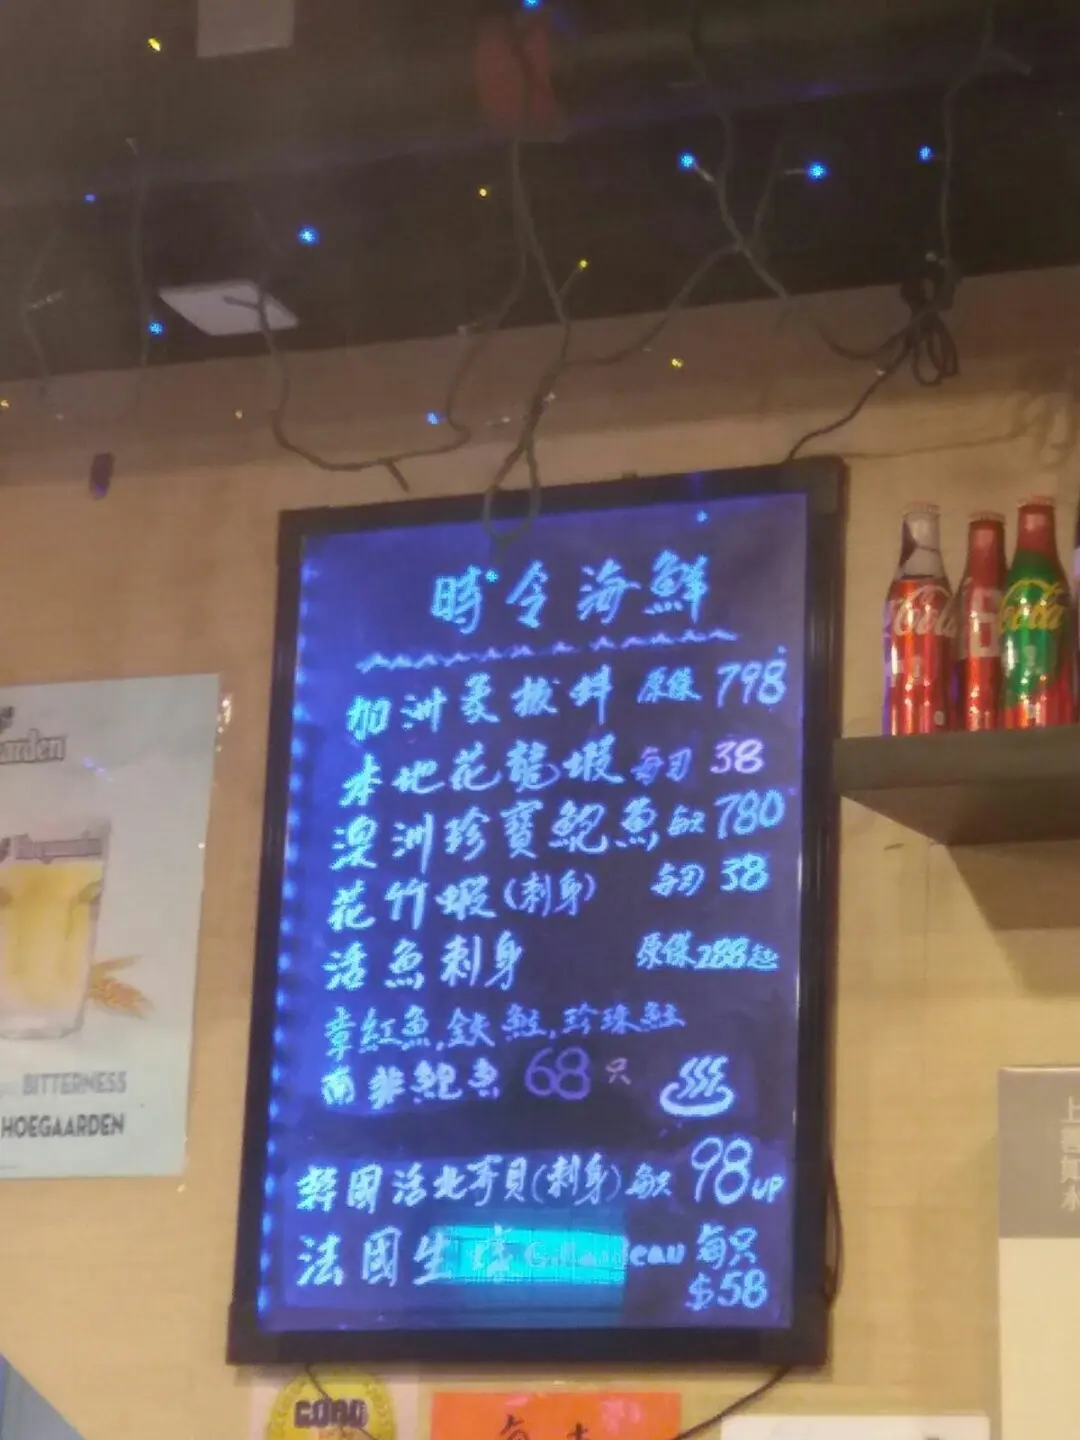 時令海鮮
加洲象拔蚌 原條 798
本地花龍蝦 每刃 38
澳洲珍寶鮑魚 每只 780
花竹蝦(刺身) 每刃 38
活魚刺身 原條 288起
章紅魚,鮭,珍珠鮭
南非鮑魚 68只
韓國活北寄貝(刺身) 每只 98up
法國生蠔 Gillardeau 每只
$58
BITTERNESS
HOEGAARDEN
Cola
Cola
GOOD